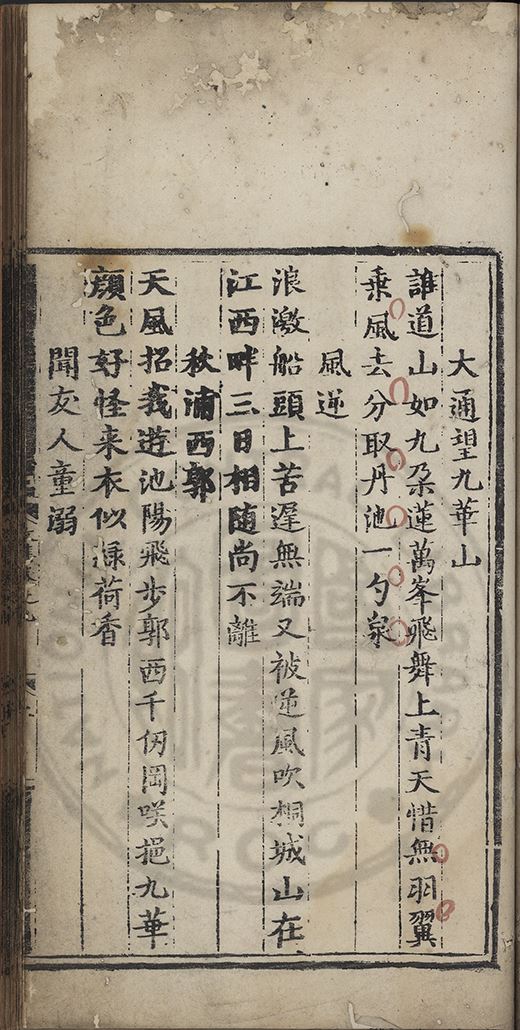 大通望九華山
誰道山如九朶蓮萬峯飛舞上青天惜無羽翼
乗風去分取丹池一勺泉
風逆
浪激船頭上苦遲無端又被逆風吹桐城山在
江西畔三日相随尚不離
秋浦西郭
天風招我遊池陽飛步郭西千仞岡咲挹九華
顔色好怪来衣似渌荷香
聞友人童溺